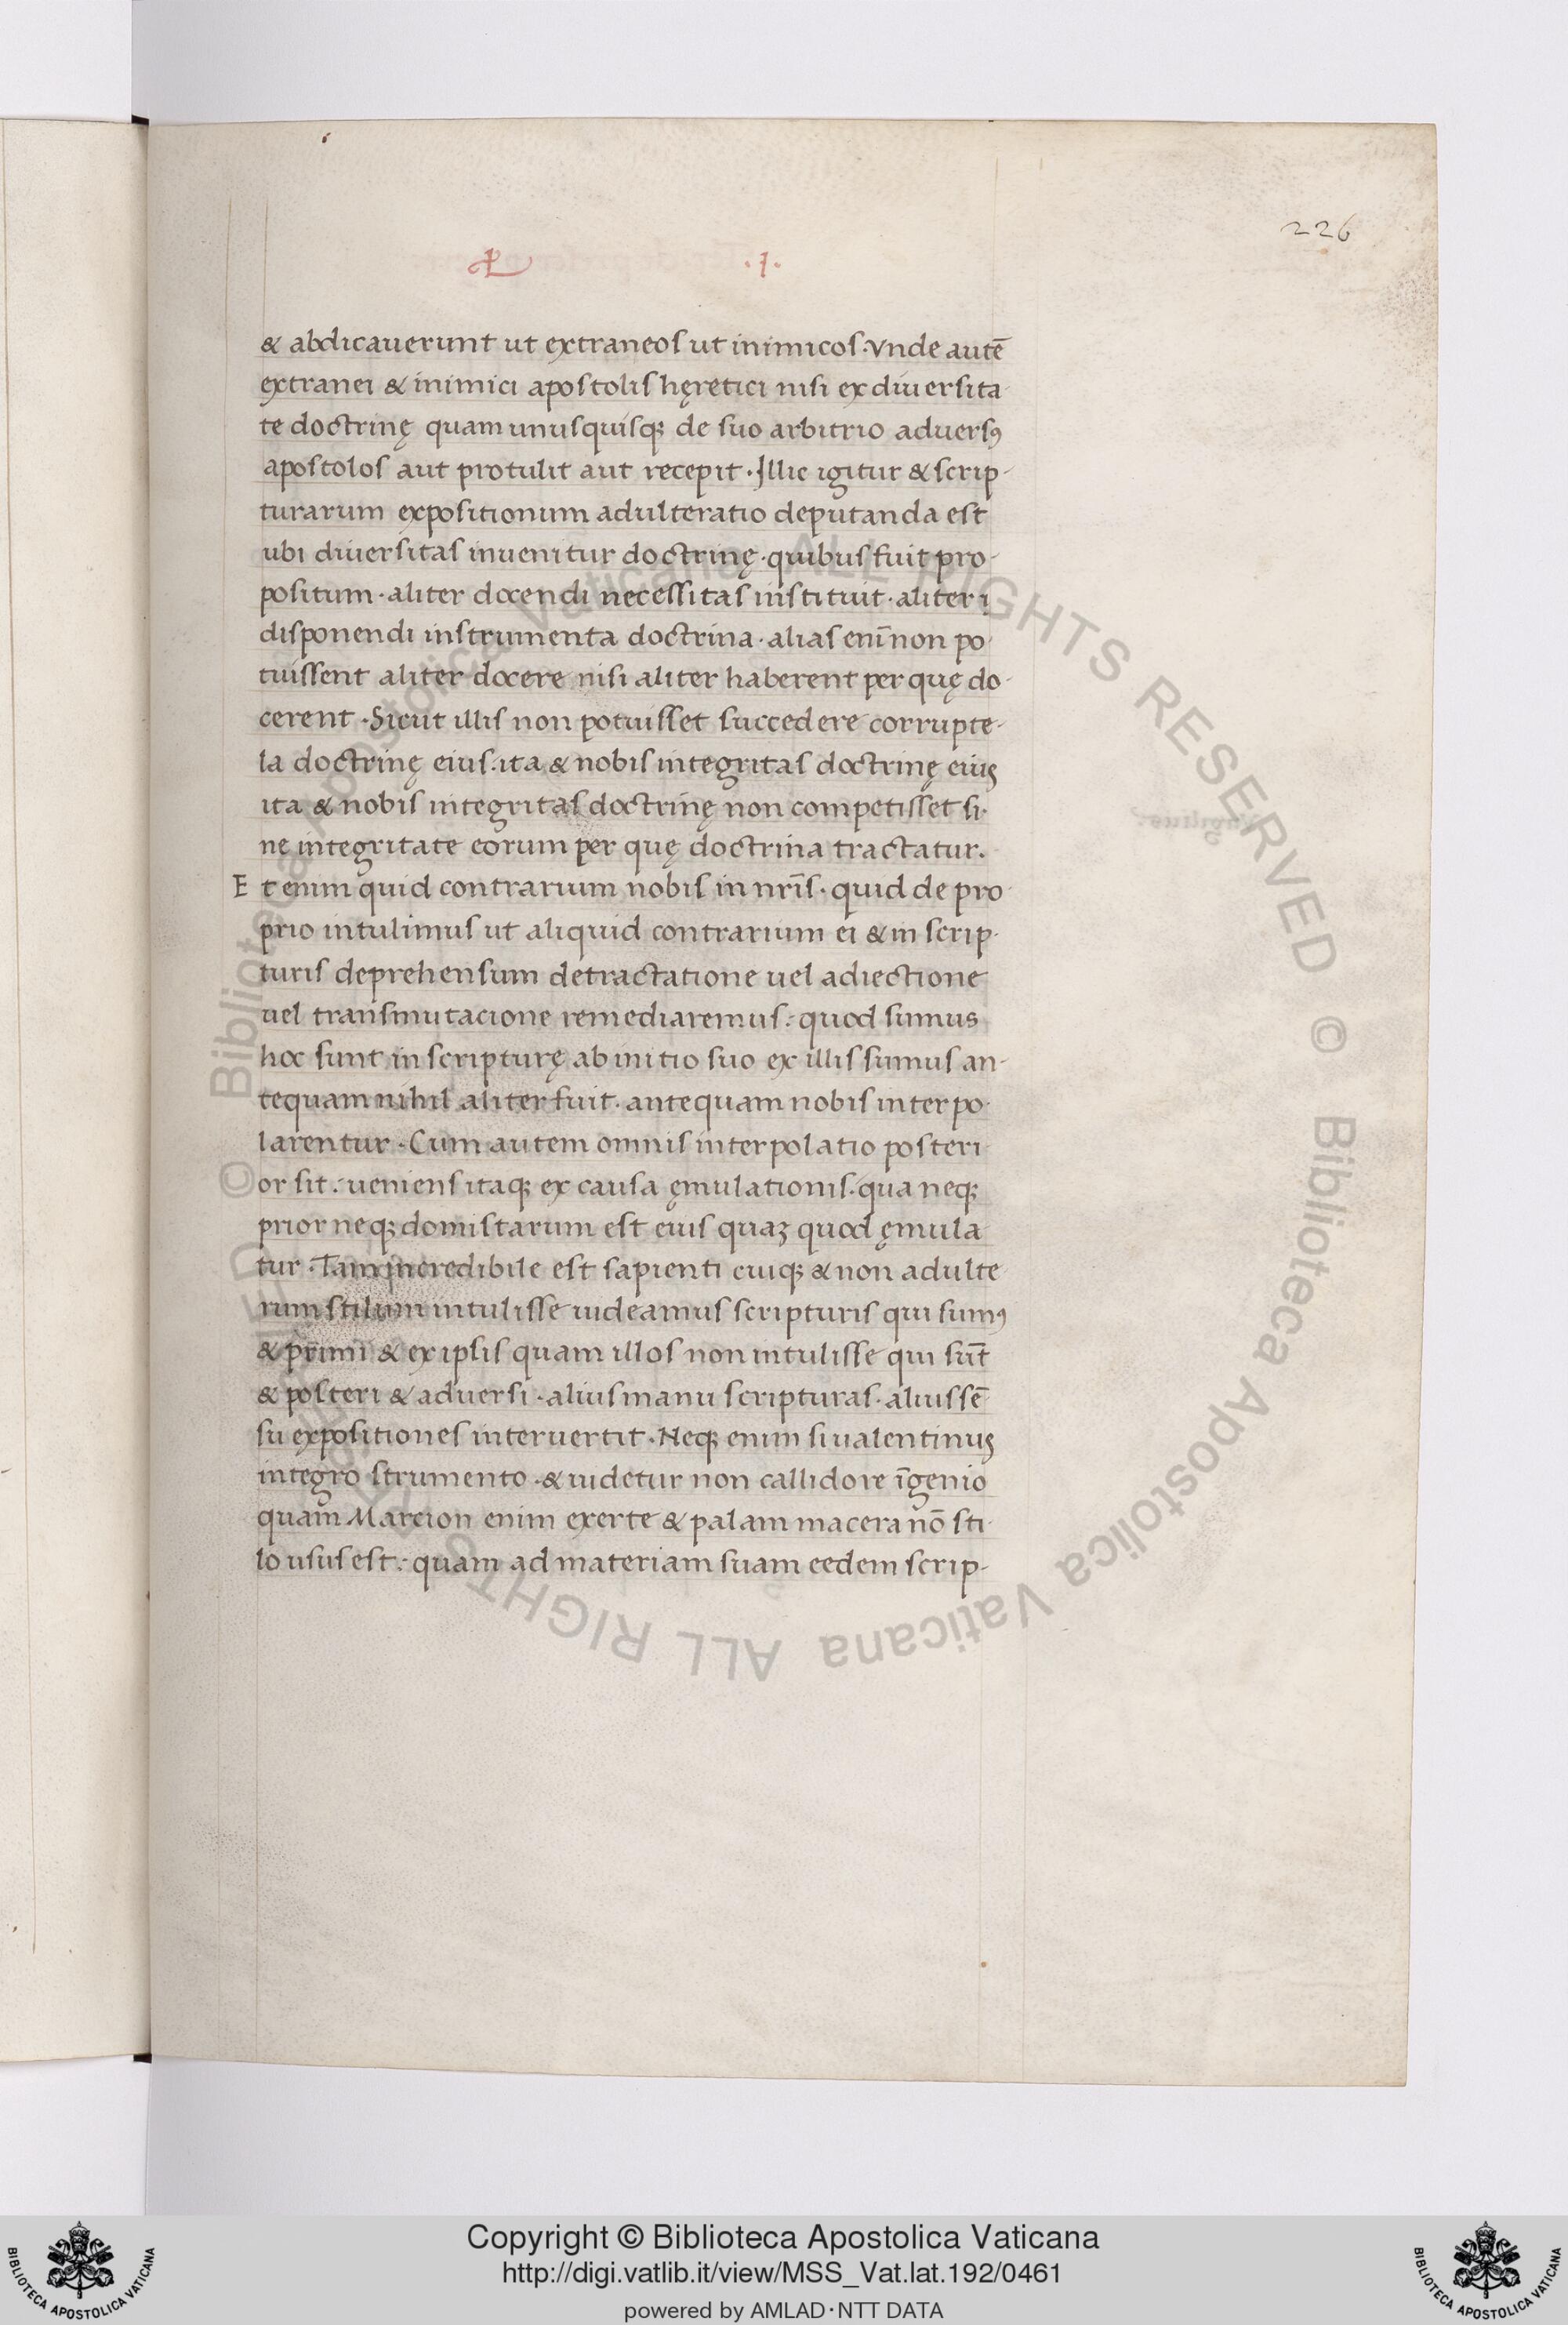 226
.I.
& abdicauerunt ut extraneos ut inimicos. Vnde autē
extranei & inimici apostolis hęretici nisi ex diuersita
te doctrinę quam unusquisq; de suo arbitrio aduersꝰ
apostolos aut protulit aut recepit. Illic igitur & scrip-
turarum expositionum adulteratio deputanda est
ubi diuersitas inuenitur doctrinę. quibus fuit pro-
positum. aliter docendi necessitas instituit. aliter i
disponendi instrumenta doctrina. alias enī non po
tuissent aliter docere nisi aliter haberent per quę do-
cerent. Sicut illis non potuisset succedere corrupte-
la doctrinę eius. ita & nobis integritas doctrinę eius
ita & nobis integritas doctrinę non competisset si-
ne integritate eorum per quę doctrina tractatur.
Et enim quid contrarium nobis in nrīs. quid de pro
prio intulimus ut aliquid contrarium ei & in scrip-
turis deprehensum detractatione uel adiectione
uel transmutacione remediaremus: quod sumus
hoc sunt in scripturę ab initio suo ex illis sumus an-
tequam nihil aliter fuit. antequam nobis interpo-
larentur. Cum autem omnis interpolatio posteri
or sit: ueniens itaq; ex causa ęmulationis. qua neq;
prior neq; domistarum est eius quaʒ quod ęmula
tur. Tam incredibile est sapienti cuiq; & non adulte
rum stilum intulisse uideamus scripturis qui sumꝰ
& primi & ex ipsis quam illos non intulisse qui sūt
& posteri & aduersi. alius manu scripturas. alius sē
su expositiones interuertit. Neq; enim si ualentinus
integro strumento. & uidetur non callidore īgenio
quam Marcion enim exerte & palam macera nō sti
lo usus est: quam ad materiam suam eedem scrip-
© Biblioteca Apostolica Vaticana ALL RIGHTS RESERVED
© Biblioteca Apostolica Vaticana ALL RIGHTS RESERVED
Copyright © Biblioteca Apostolica Vaticana
http://digi.vatlib.it/view/MSS_Vat.lat.192/0461
powered by AMLAD · NTT DATA
BIBLIOTECA APOSTOLICA VATICANA
BIBLIOTECA APOSTOLICA VATICANA